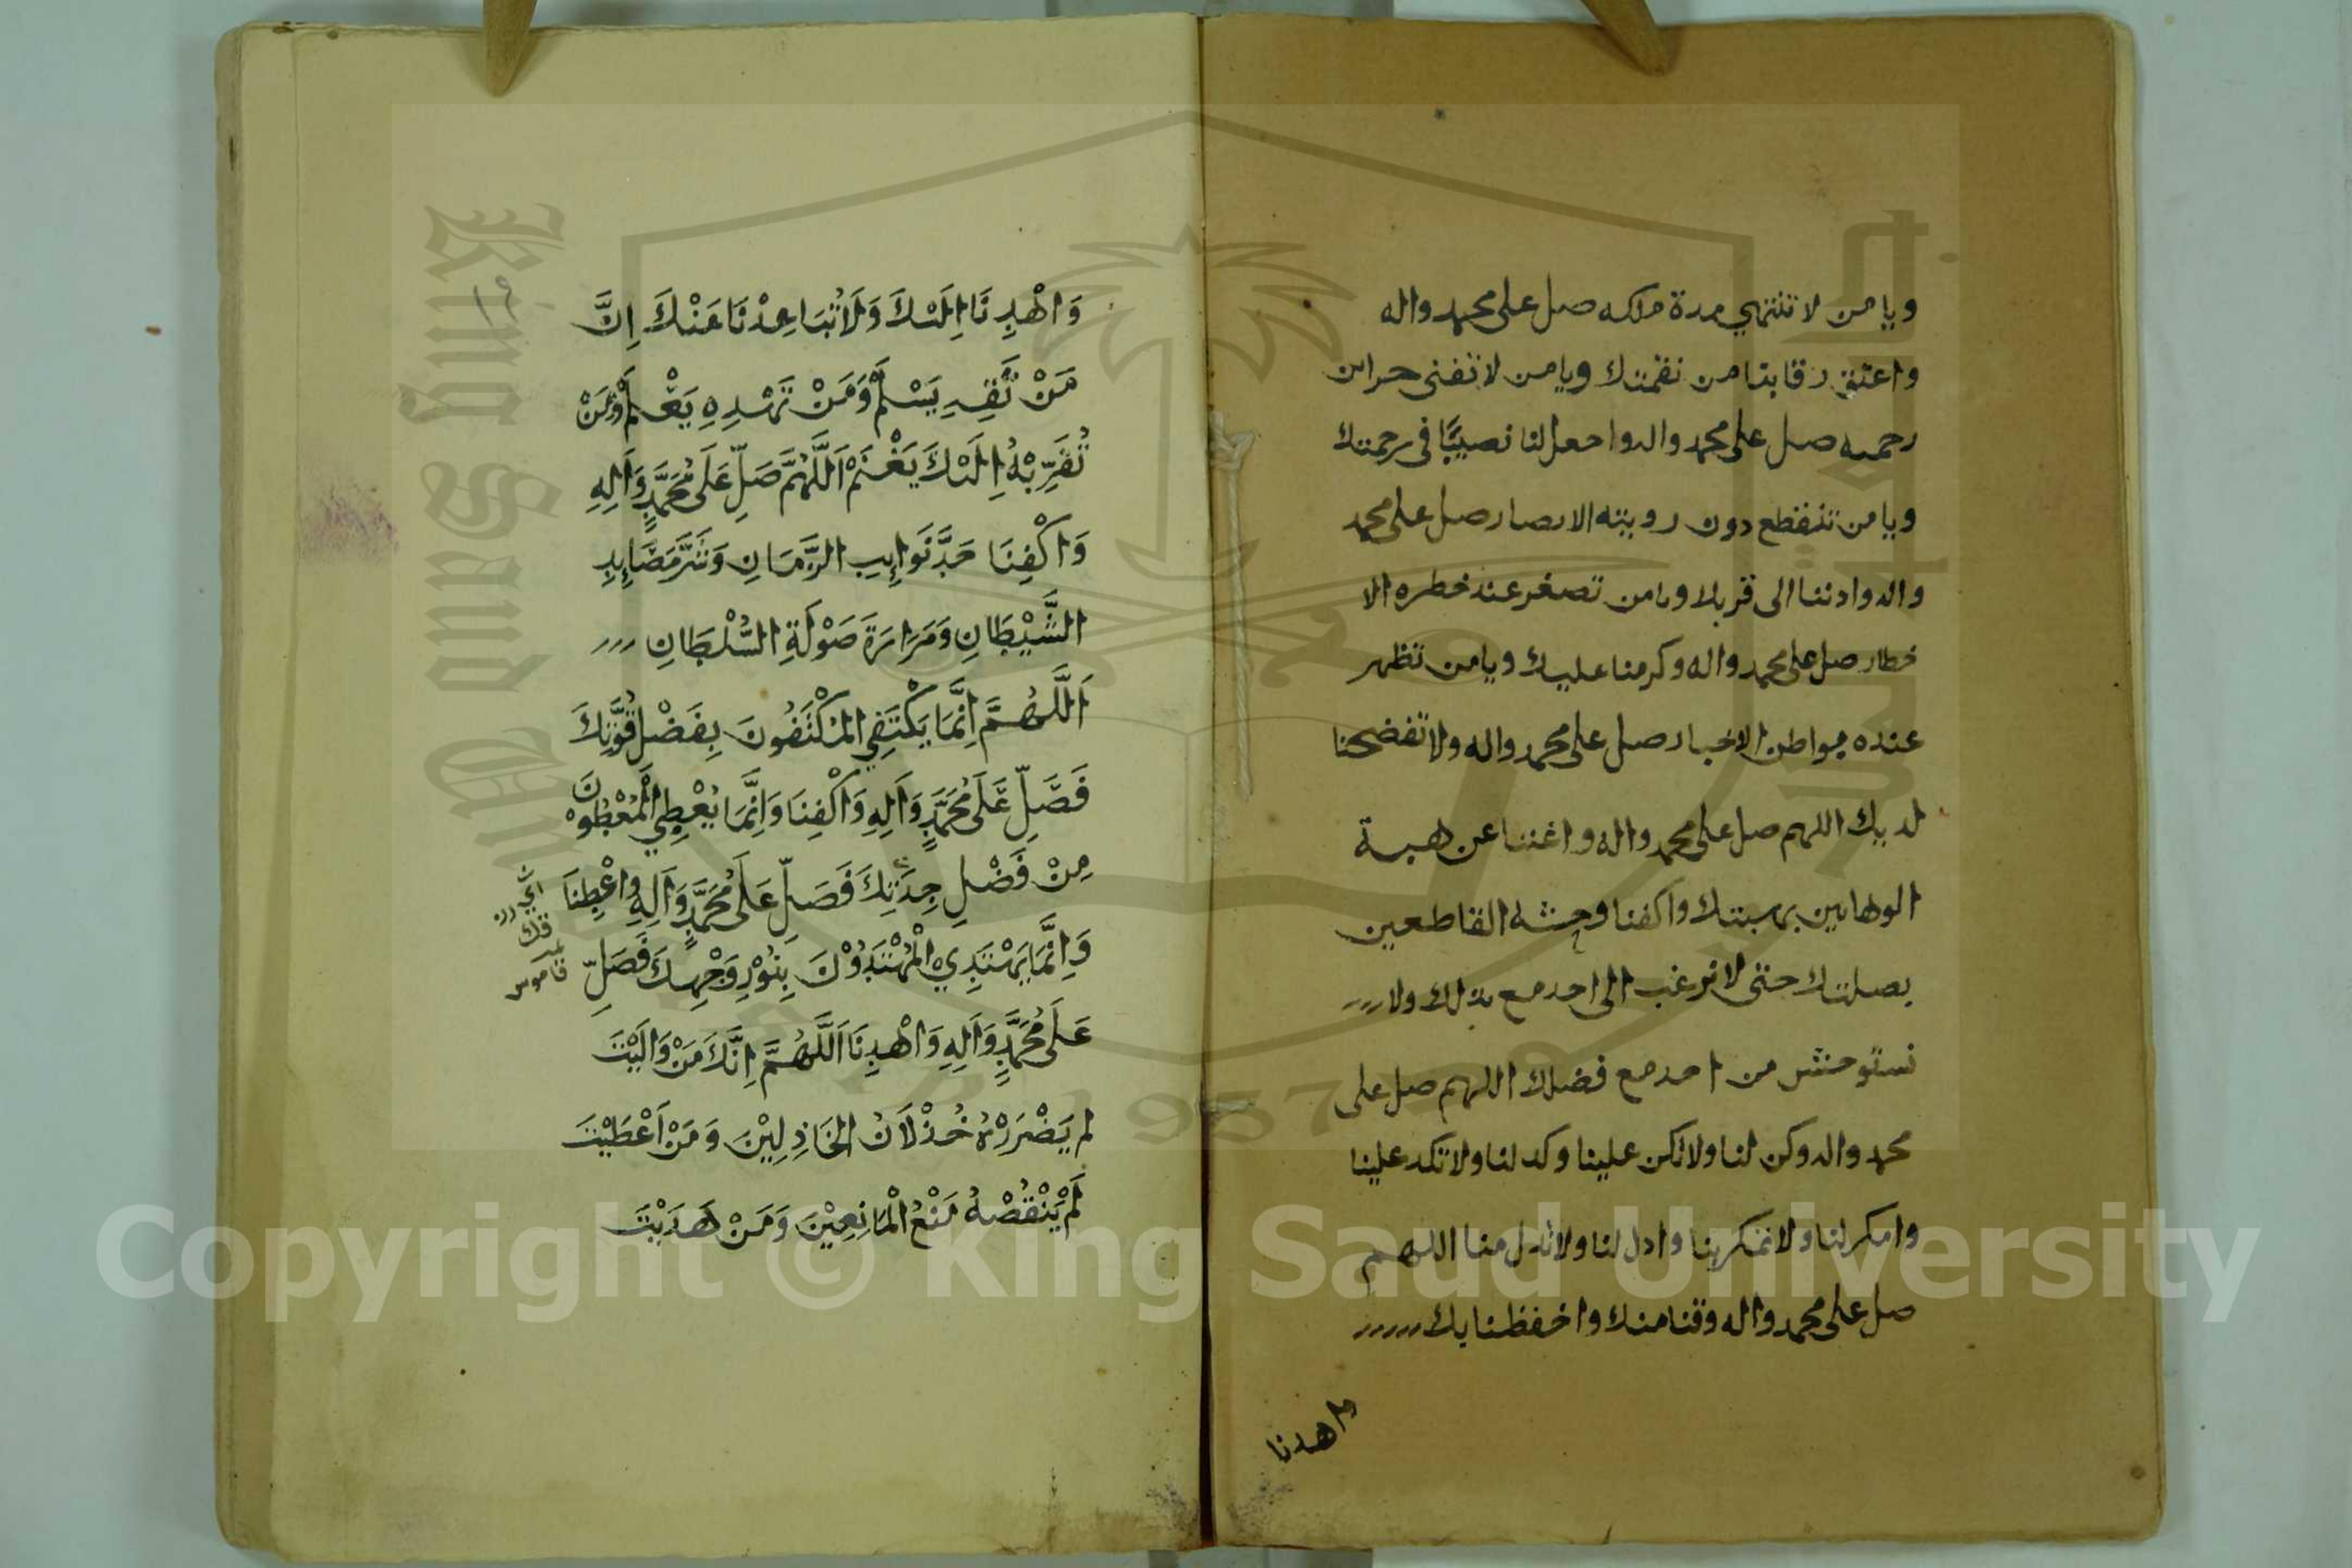 ويا من لا تنتهي مدة ملكه صل على محمد واله
واعتق رقابنا من نقمتك ويا من لا تفنى خزائن
رحمته صل على محمد واله واجعل لنا نصيبًا في رحمتك
ويا من تنقطع دون رويته الابصار صل على محمد
واله وادننا الى قربك ويا من تصغر عند خطره الا
خطار صل على محمد واله وكرمنا عليك ويا من تظهر
عنده بواطن الاخبار صل على محمد واله ولا تفضحنا
لديك اللهم صل على محمد واله واغننا عن هبة
الوهابين بهبتك واكفنا وحشة القاطعين
بصلتك حتى لا نرغب الى احد مع بذلك ولا
نستوحش من احد مع فضلك اللهم صل على
محمد واله وكن لنا ولا تكن علينا وكد لنا ولا تكد علينا
وامكر لنا ولا تمكر بنا وادل لنا ولا تدل منا اللهم
صل على محمد واله وقنا منك واحفظنا بك
واهدنا
وَاهْدِنَا اِلَيْكَ وَلَا تُبَاعِدْنَا عَنْكَ اِنَّ
مَنْ تَقِهِ يَسْلَمْ وَمَنْ تَهْدِهِ يَعْلَمْ وَمَنْ
تُقَرِّبْهُ اِلَيْكَ يَغْنَمْ اَللَّهُمَّ صَلِّ عَلَى مُحَمَّدٍ وَاَلِهِ
وَاكْفِنَا حَدَّ نَوَايِبِ الزَّمَانِ وَشَرَّ مَصَايِدِ
الشَّيْطَانِ وَمَرَارَةَ صَوْلَةِ السُّلْطَانِ
اَللَّهُمَّ اِنَّمَا يَكْتَفِي الْمُكْتَفُونَ بِفَضْلِ قُوَّتِكَ
فَصَلِّ عَلَى مُحَمَّدٍ وَاَلِهِ وَاكْفِنَا وَاِنَّمَا يُعْطِي الْمُعْطُوْنَ
مِنْ فَضْلِ جِدَتِكَ فَصَلِّ عَلَى مُحَمَّدٍ وَاَلِهِ وَاعْطِنَا
وَاِنَّمَا يَهْتَدِي الْمُهْتَدُوْنَ بِنُوْرِ وَجْهِكَ فَصَلِّ
عَلَى مُحَمَّدٍ وَاَلِهِ وَاهْدِنَا اَللَّهُمَّ اِنَّكَ مَنْ وَالَيْتَ
لم يَضْرُرْهُ خُذْلَانُ الْخَاذِلِيْنَ وَمَنْ اَعْطَيْتَ
لَمْ يَنْقُصْهُ مَنْعُ الْمَانِعِيْنَ وَمَنْ هَدَيْتَ
اي رز
قك
قاموس
King Saud University
1957
Copyright © King Saud University